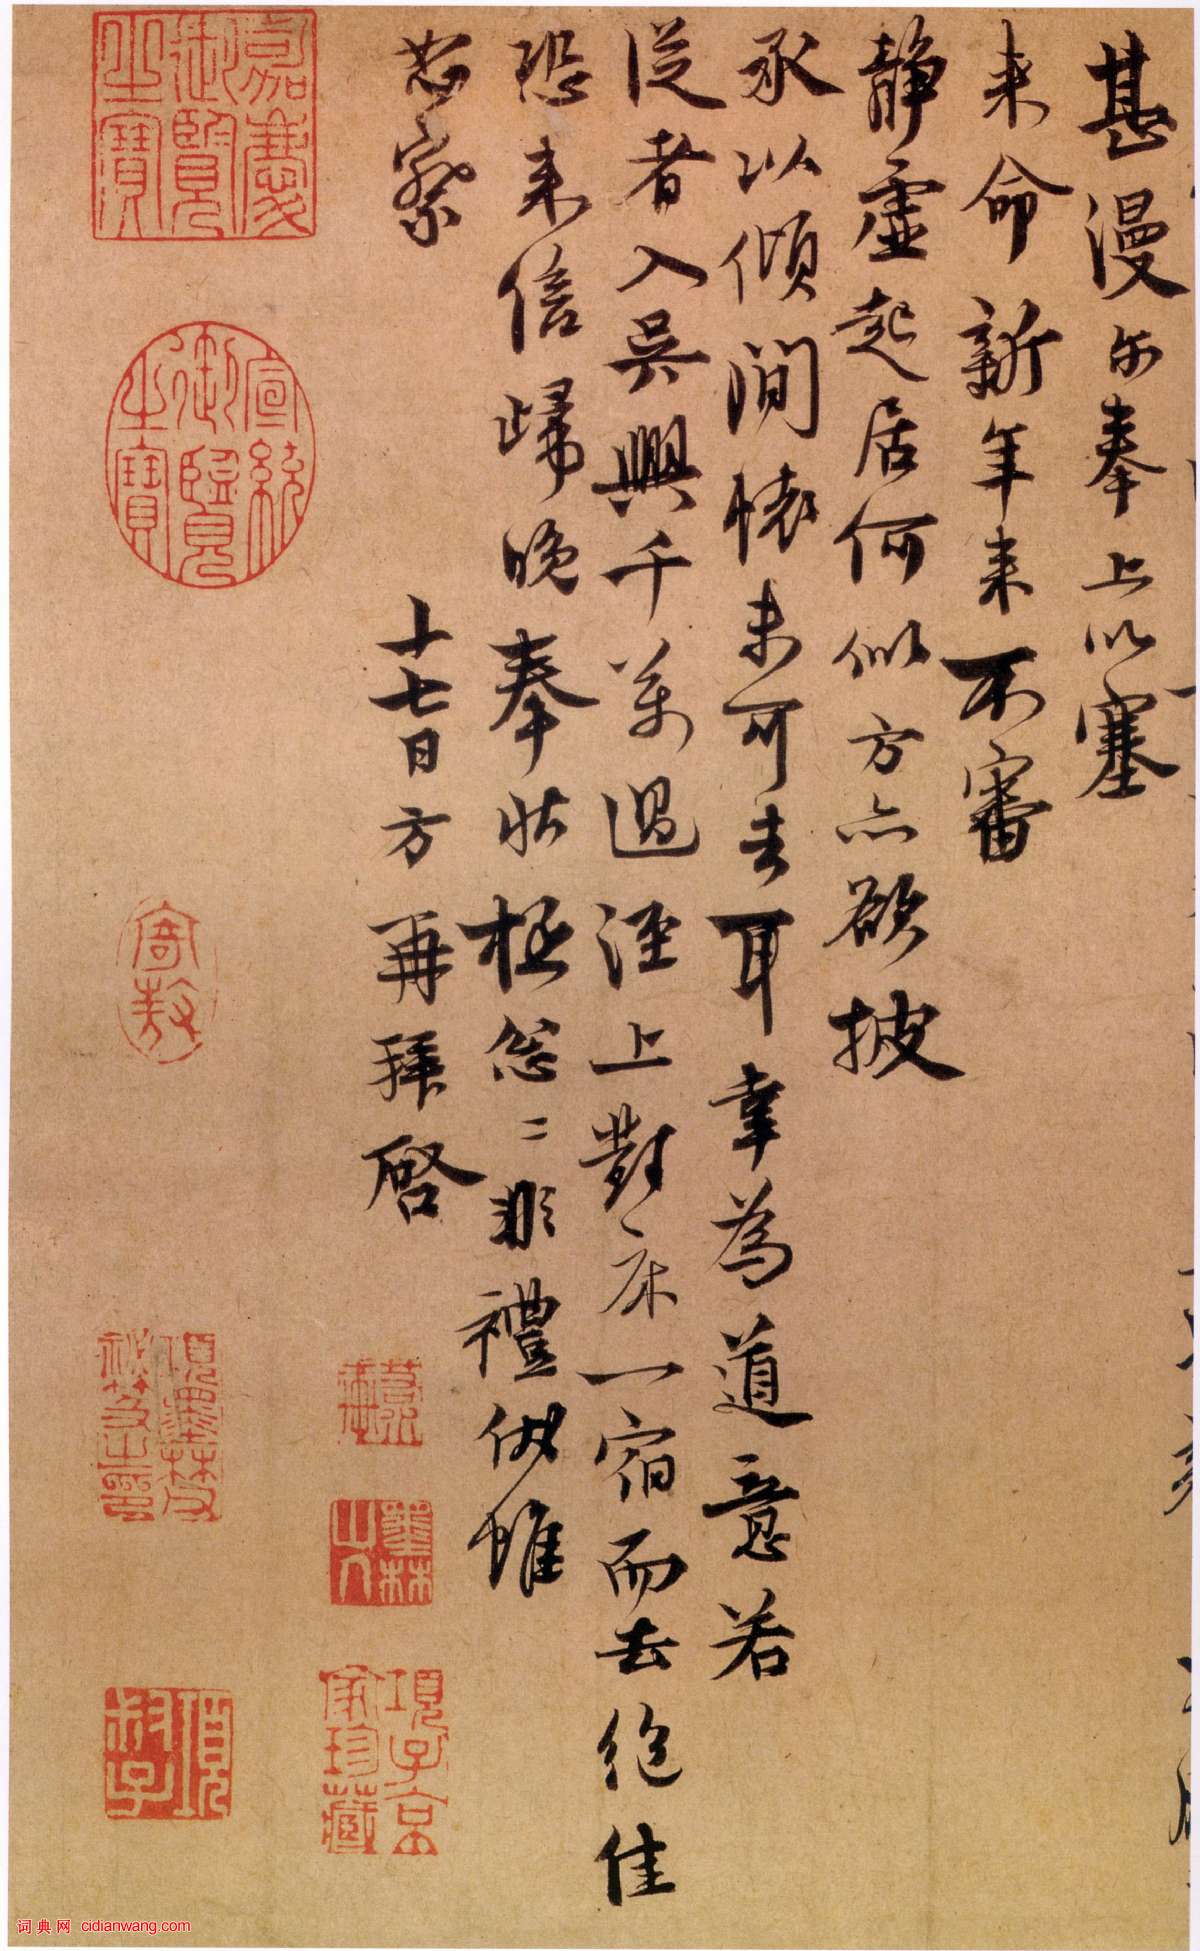 甚漫尔奉上以塞
来命新年来不審
静虚起居何似方亦欲披
承以傾懐未可去耳幸為道意若
從者入吳興千萬過涇上對床一宿而去絶佳
恐来信歸晚奉狀極怱二非禮伏惟
恕察
十七日方再拜啓
嘉慶御覽之寶
宣統御覽之寶
寄敖
項墨林父秘笈之印
項叔子
墨林山人
項子京家珍藏
词典网 cidianwang.com